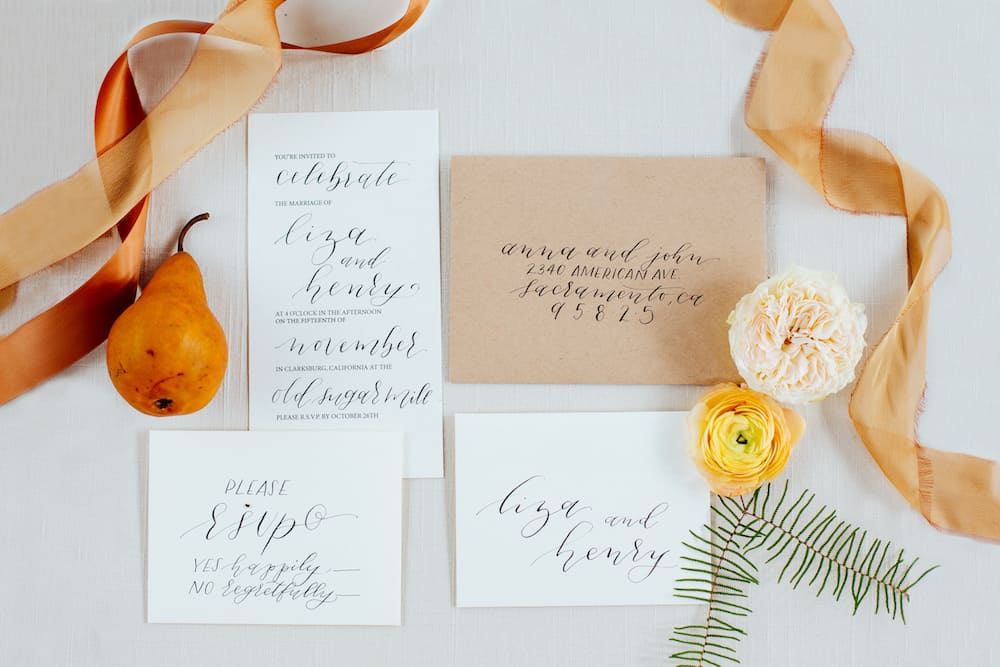 YOU'RE INVITED TO
celebrate
THE MARRIAGE OF
liza
and
henry
AT 4 O'CLOCK IN THE AFTERNOON
ON THE FIFTEENTH OF
november
IN CLARKSBURG, CALIFORNIA AT THE
old sugar mill
PLEASE R.S.V.P. BY OCTOBER 26TH
anna and john
2340 AMERICAN AVE.
sacramento, ca
95825
PLEASE
RSVP
YES happily
NO regretfully
liza and
henry